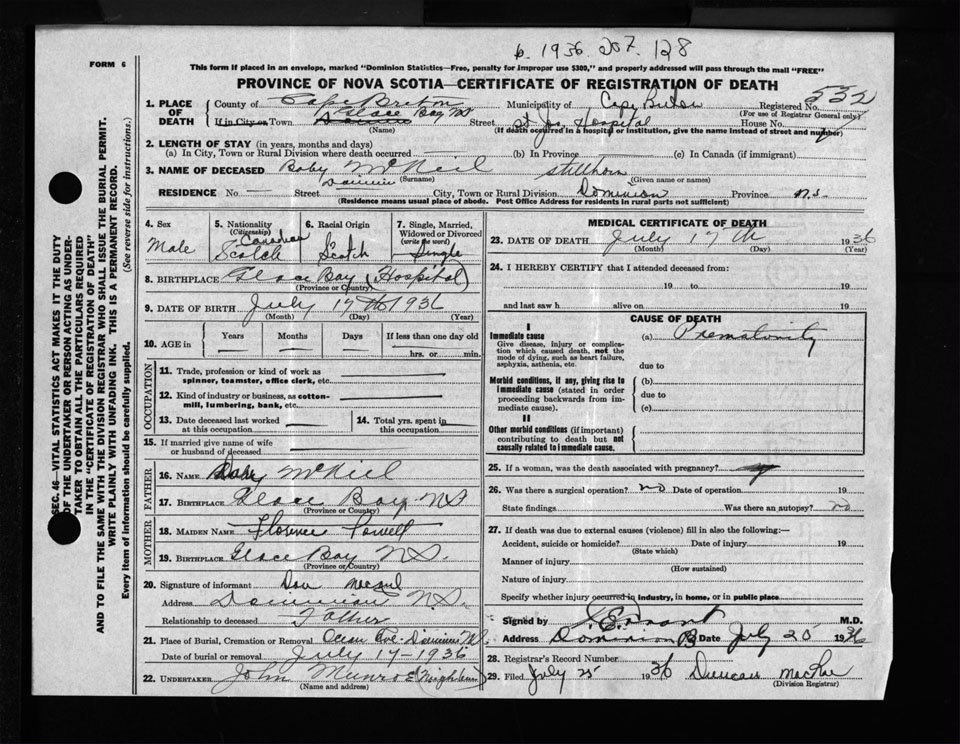 6. 1936 207. 128
FORM 6
This form if placed in an envelope, marked "Dominion Statistics—Free, penalty for improper use $300," and properly addressed will pass through the mail "FREE"
PROVINCE OF NOVA SCOTIA—CERTIFICATE OF REGISTRATION OF DEATH
1. PLACE OF DEATH County of Cape Breton Municipality of Cape Breton Registered No. 532
(For use of Registrar General only)
If in City or Town Glace Bay NS Street St Jos. Hospital House No.
(Name) (If death occurred in a hospital or institution, give the name instead of street and number)
2. LENGTH OF STAY (in years, months and days)
(a) In City, Town or Rural Division where death occurred (b) In Province (c) In Canada (if immigrant)
3. NAME OF DECEASED Baby McNeil stillborn
(Surname) (Given name or names)
RESIDENCE No. — Street City, Town or Rural Division Dominion Province N.S.
(Residence means usual place of abode. Post Office Address for residents in rural parts not sufficient)
4. Sex Male
5. Nationality (Citizenship) Canadian Scotch
6. Racial Origin Scotch
7. Single, Married, Widowed or Divorced (write the word) Single
8. BIRTHPLACE Glace Bay (Hospital)
(Province or Country)
9. DATE OF BIRTH July 17th 1936
(Month) (Day) (Year)
10. AGE in Years Months Days If less than one day old
hrs. or min.
OCCUPATION
11. Trade, profession or kind of work as spinner, teamster, office clerk, etc.
12. Kind of industry or business, as cotton-mill, lumbering, bank, etc.
13. Date deceased last worked at this occupation
14. Total yrs. spent in this occupation
15. If married give name of wife or husband of deceased
FATHER
16. NAME McNeil
17. BIRTHPLACE Glace Bay NS
(Province or Country)
MOTHER
18. MAIDEN NAME Florence Powell
19. BIRTHPLACE Glace Bay N.S.
(Province or Country)
20. Signature of informant Dan
Address Dominion N.S.
Relationship to deceased Father
21. Place of Burial, Cremation or Removal Dominion
Date of burial or removal July 17-1936
22. UNDERTAKER John Munro (Neighbour)
(Name and address)
MEDICAL CERTIFICATE OF DEATH
23. DATE OF DEATH July 17th 1936
(Month) (Day) (Year)
24. I HEREBY CERTIFY that I attended deceased from:
19 to 19
and last saw h alive on 19
CAUSE OF DEATH
I
Immediate cause (a) Prematurity
Give disease, injury or complication which caused death, not the mode of dying, such as heart failure, asphyxia, asthenia, etc.
due to
Morbid conditions, if any, giving rise to immediate cause (stated in order proceeding backwards from immediate cause).
(b)
due to
(c)
II
Other morbid conditions (if important) contributing to death but not causally related to immediate cause.
25. If a woman, was the death associated with pregnancy?
26. Was there a surgical operation? no Date of operation 19
State findings Was there an autopsy? no
27. If death was due to external causes (violence) fill in also the following:—
Accident, suicide or homicide? Date of injury 19
(State which)
Manner of injury
(How sustained)
Nature of injury
Specify whether injury occurred in industry, in home, or in public place
Signed by M.D.
Address Dominion Date July 20 1936
28. Registrar's Record Number
29. Filed July 25 1936 Duncan MacRae
(Division Registrar)
SEC. 46—VITAL STATISTICS ACT MAKES IT THE DUTY
OF THE UNDERTAKER OR PERSON ACTING AS UNDER-
TAKER TO OBTAIN ALL THE PARTICULARS REQUIRED
IN THE "CERTIFICATE OF REGISTRATION OF DEATH"
AND TO FILE THE SAME WITH THE DIVISION REGISTRAR WHO SHALL ISSUE THE BURIAL PERMIT.
WRITE PLAINLY WITH UNFADING INK. THIS IS A PERMANENT RECORD.
Every item of information should be carefully supplied. (See reverse side for instructions.)